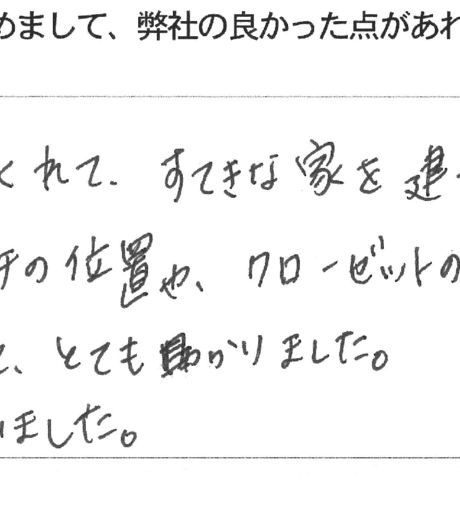 めまして、弊社の良かった点があれ
くれて、すてきな家を建
チの位置や、クローゼットの
て、とても助かりました。
いました。